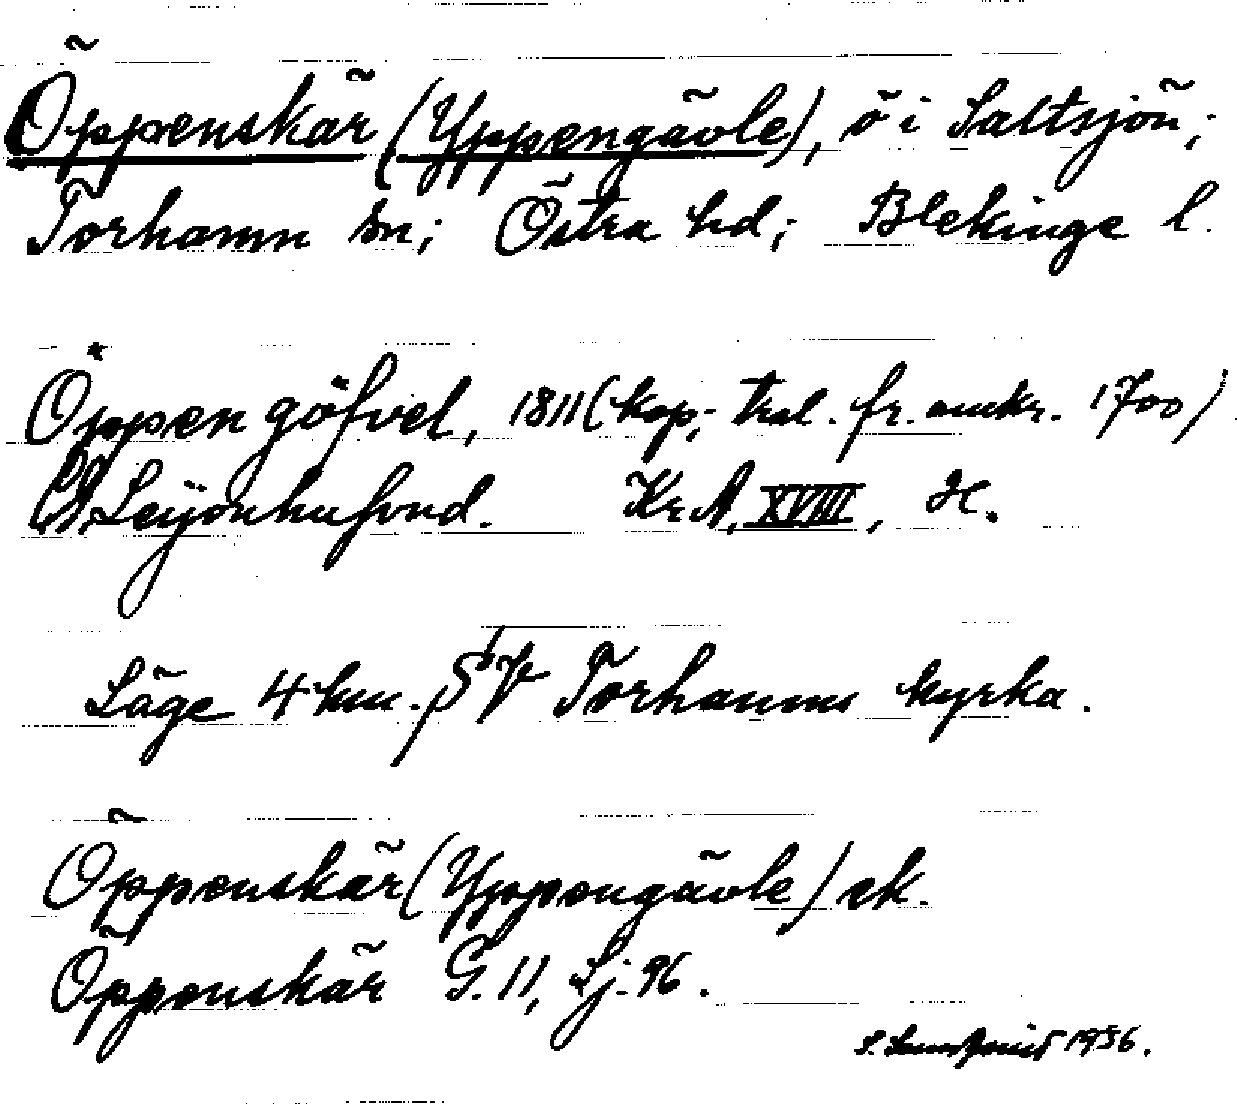 Öppenskär (Yppengävle), ö i Saltsjön;
Torhamn sn; Östra hd; Blekinge l.
Öppen göfvel, 1811 (kop; tral. fr. omkr. 1700)
CG Leijonhufvud. KrA, XVIII, H.
Läge 4 km. S Torhamns kyrka.
Öppenskär (Yppengävle) ek.
Öppenskär G. 11, Sj. 96.
1936.